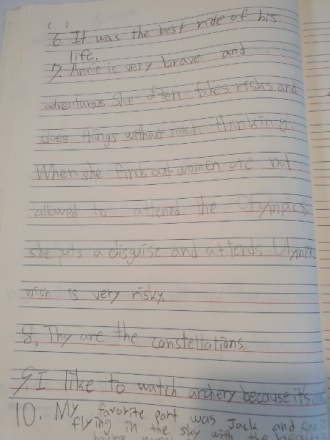 ( )
6. It was the best ride of his
life.
7. Annie is very brave and
adventurous She often takes risks and
does things without much thinking
When she finds out women are not
allowed to attened the Olympics
she puts a disguise and attends Olympic
wich is very risky.
8. Thy are the constellations
9. I like to watch archery because its
10. My favorite part was Jack and
flying in the sky with the